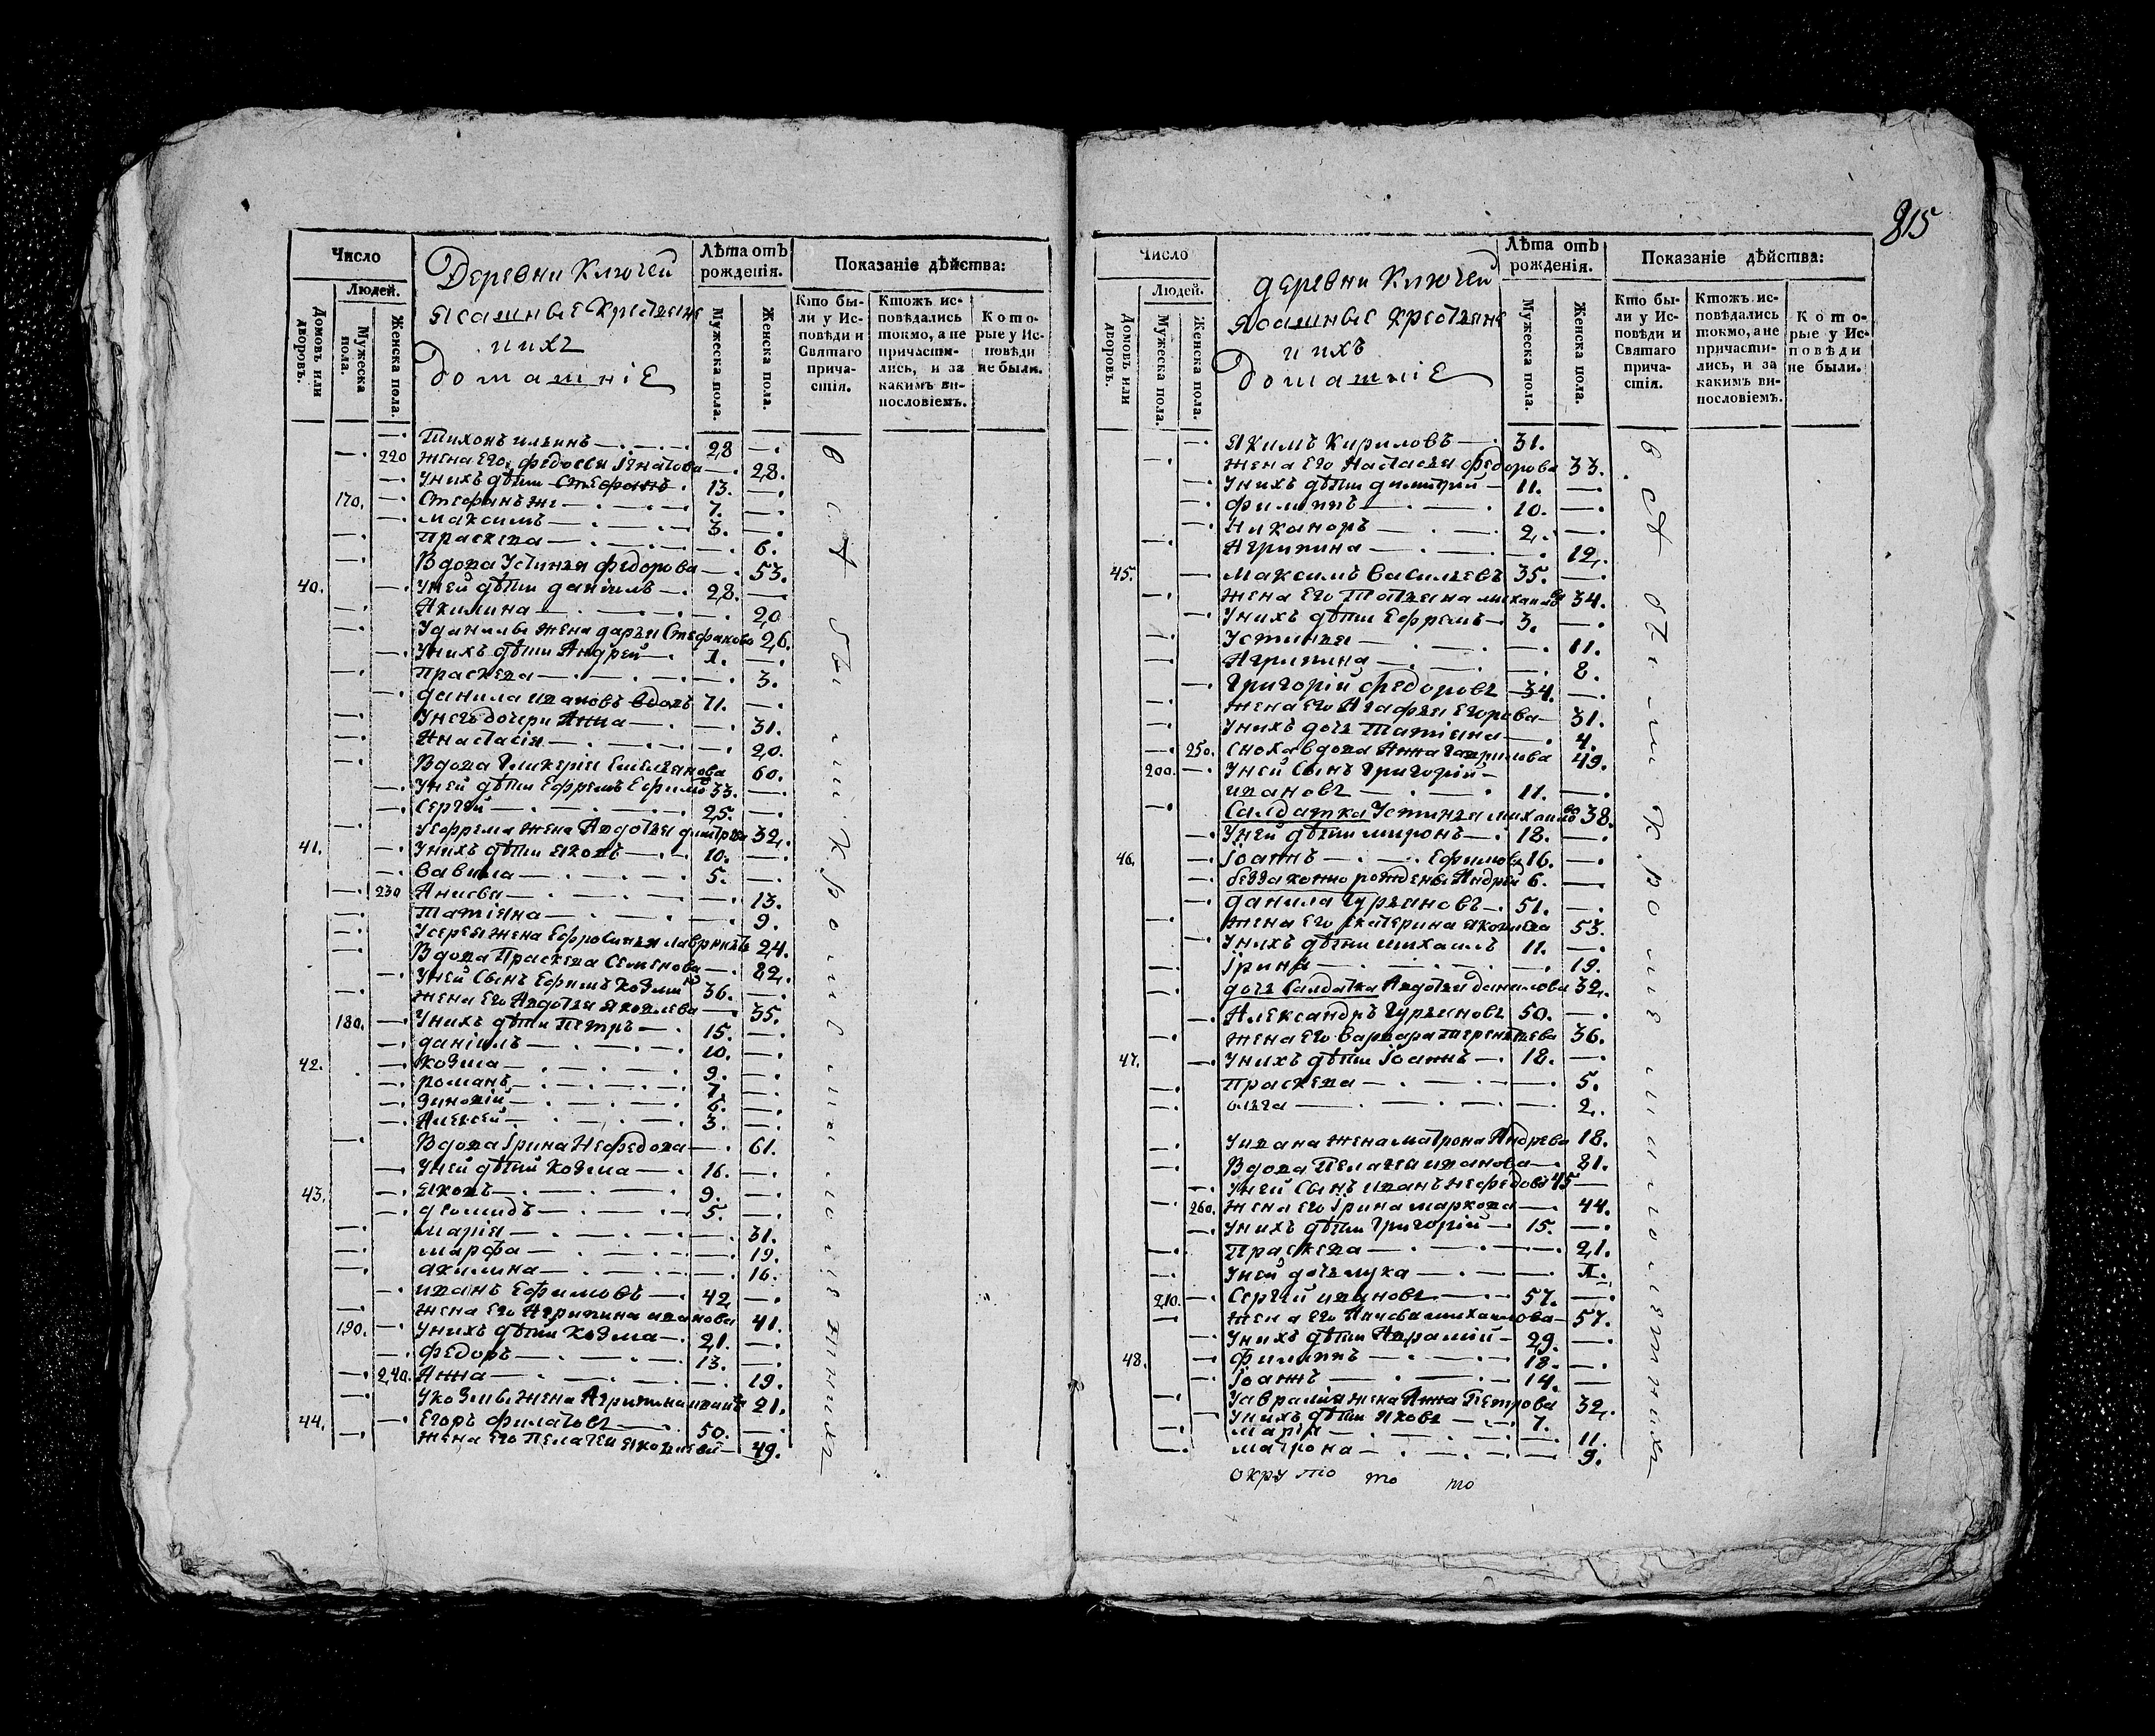 815
Число
Людей.
Домовъ или дворовъ.
Мужеска пола.
Женска пола.
Деревни Ключей
ясашные крестяне
и ихъ
домашніе
Лѣта отъ рожденія.
Мужеска пола.
Женска пола.
Показаніе дѣйства:
Кто бы-
ли у Ис-
повѣди и
Святаго
прича-
стія.
Ктожъ ис-
повѣдались
токмо, а не
причасти-
лись, и за
какимъ ви-
нословіемъ.
Кото-
рые у Ис-
повѣди
не были.
Тихонъ ильинъ 28
220 жена его федосея Iгнатова 28.
Унихъ дѣти Стефанъ 13.
170. Стефанъ же 7.
максимъ 3.
Праскева 6.
Вдова Устинья федорова 53.
40. Уней дѣти даніилъ 28.
Акилина 20
Уданилы жена дарья Стефанова 26.
Унихъ дѣти Андрей 1.
Праскева 3.
данила ивановъ вдовъ 71.
Унегодочери Анна 31.
Анастасія 20.
Вдова Гликерія Емельянова 60.
Уней дѣти Ефремъ Ефимо 33.
Сергей 25.
Уефрема жена Авдотья дмитрева 32.
41. Унихъ дѣти яковъ 10.
вавила 5.
230 Анисья 13.
Татіяна 9.
Усергея жена Ефросинья лаврентьева 24.
Вдова Праскева Семенова 82.
Уней Сынъ Ефимъ козмин 36.
жена его Авдотья яковлева 35.
180. Унихъ дѣти Петръ 15.
даніилъ 10.
42. козма 9.
романъ 7.
зиновій 6.
Алексей 3.
Вдова Iрина Нефедова 61.
Уней дѣтий козма 16.
43. яковъ 9.
деомидъ 5.
марія 31.
марфа 19.
акилина 16.
иванъ Ефимовъ 42
жена его Агрипина иванова 41.
190. Унихъ дѣти козма 21.
федоръ 13.
240. Анна 19.
Укозмы жена Агрипина 21.
44. Егоръ филатовъ 50.
жена его Пелагея яковлева 49.
Число
Людей.
Домовъ или дворовъ.
Мужеска пола.
Женска пола.
деревни Ключей
ясашные крестяне
и ихъ
домашніе
Лѣта отъ рожденія.
Мужеска пола.
Женска пола.
Показаніе дѣйства:
Кто бы-
ли у Ис-
повѣди и
Святаго
прича-
стія.
Ктожъ ис-
повѣдались
токмо, а не
причасти-
лись, и за
какимъ ви-
нословіемъ.
Кото-
рые у Ис-
повѣди
не были.
якимъ кириловъ 31.
жена его Настасья федорова 33.
Унихъ дѣти димитрий 11.
филиппъ 10.
Никаноръ 2.
Агрипина 12.
45. максимъ васильевъ 35.
жена его Татьяна михаилова 34.
Унихъ дѣти Ефремъ 3.
Устинья 11.
Агрипина 8.
Григорій федоровъ 34.
жена его Агафья Егорова 31.
Унихъ дочь Татіяна 4.
250. Сноха вдова Анна Гаврилова 49.
200. Уней Сынъ Григорій
ивановъ 11.
Салдатка Устинья михаилова 38.
Уней дѣти миронъ 18.
46. Iоаннъ Ефимовъ 16.
беззаконно рожденый Андрей 6.
данила Гурьяновъ 51.
жена его Екатерина яковлева 53.
Унихъ дѣти михаилъ 11.
Iрина 19.
дочь Салдатка Авдотья данилова 32.
Александръ Гурьяновъ 50.
жена его варвара терентьева 36.
47. Унихъ дѣти Iоаннъ 18.
Праскева 5.
ольга 2.
Уивана жена матрона Андрева 18.
Вдова Пелагея иванова 81.
Уней Сынъ иванъ нефедовъ 45
260. жена его Iрина маркова 44.
Унихъ дѣти Григорій 15.
Праскева 21.
Уней дочь лука 1.
210. Сергей ивановъ 57.
жена его Анисья михаилова 57.
Унихъ дѣти Аврамій 29.
48. филиппъ 18.
Iоаннъ 14.
Уаврамія жена Анна Петрова 32.
Унихъ дѣти яковъ 7.
марія 11.
матрона 9.
округло то то
всѣ были кромѣ малолетнихъ
всѣ были кромѣ малолетнихъ